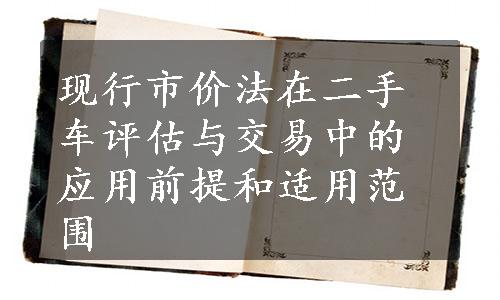 现行市价法在二手
车评估与交易中的
应用前提和适用范
围